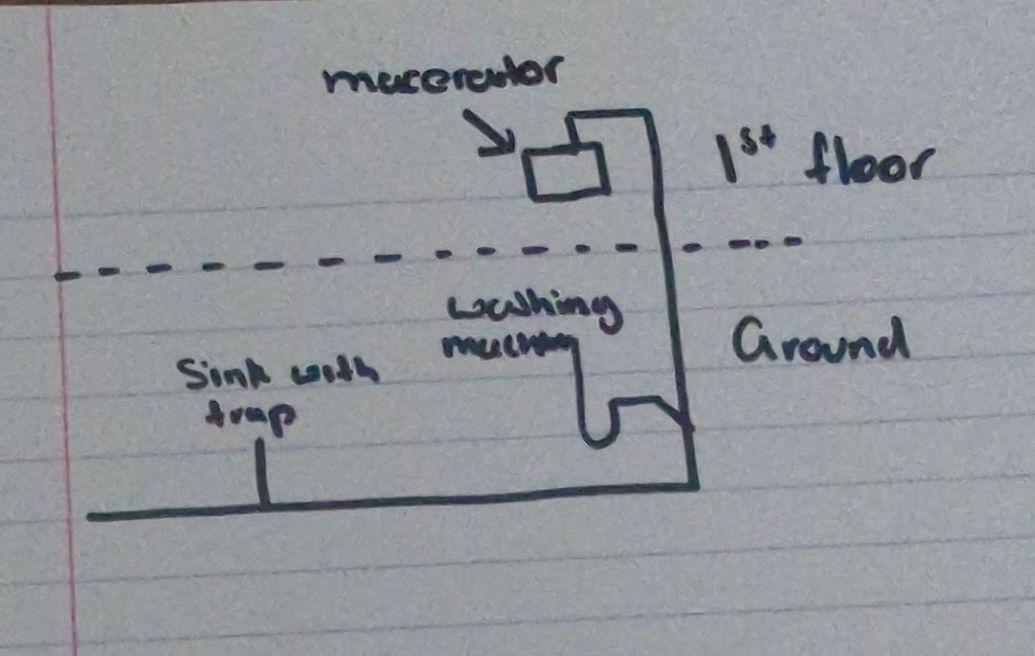 macerator
1st floor
washing
machine
Ground
Sink with
trap